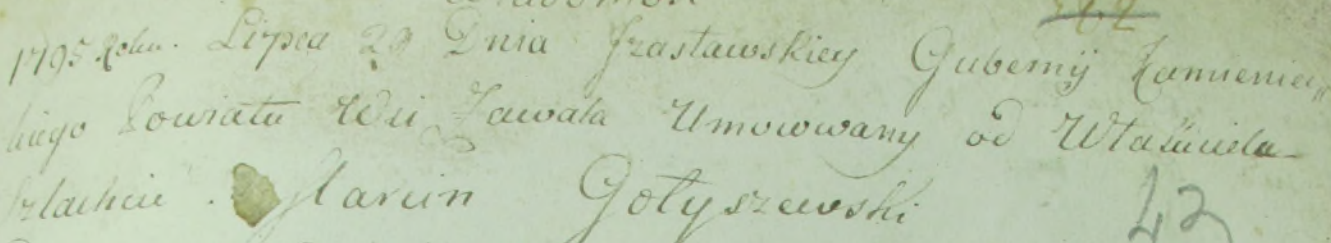 Wiadomość
1795 Roku. Lipca 29 Dnia Izasławskiey Gubernij Kamieniec„
kiego Powiatu Wsi Zawala Umowowany od Właściciela
szlachcic. Marcin Gołyszewski
42